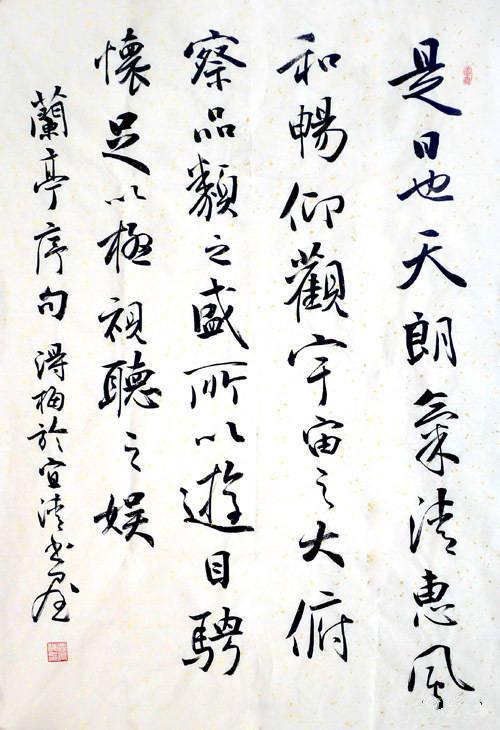 是日也天朗氣清惠風
和暢仰觀宇宙之大俯
察品類之盛所以遊目騁
懷足以極視聽之娱
蘭亭序句 得梅於宜清書屋